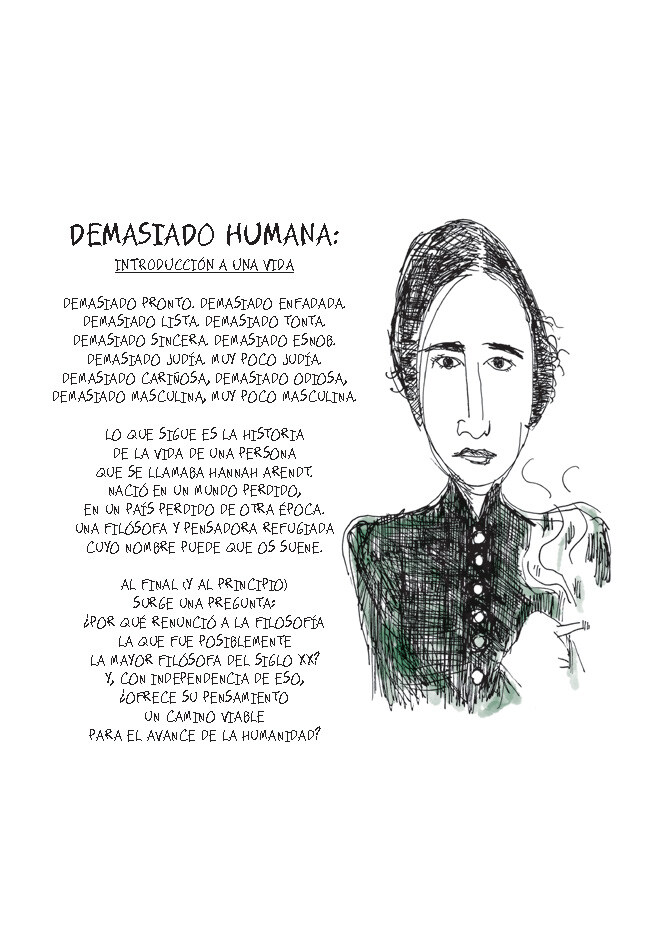 DEMASIADO HUMANA:
INTRODUCCIÓN A UNA VIDA
DEMASIADO PRONTO. DEMASIADO ENFADADA.
DEMASIADO LISTA. DEMASIADO TONTA.
DEMASIADO SINCERA. DEMASIADO ESNOB.
DEMASIADO JUDÍA. MUY POCO JUDÍA.
DEMASIADO CARIÑOSA, DEMASIADO ODIOSA,
DEMASIADO MASCULINA, MUY POCO MASCULINA.
LO QUE SIGUE ES LA HISTORIA
DE LA VIDA DE UNA PERSONA
QUE SE LLAMABA HANNAH ARENDT.
NACIÓ EN UN MUNDO PERDIDO,
EN UN PAÍS PERDIDO DE OTRA ÉPOCA.
UNA FILÓSOFA Y PENSADORA REFUGIADA
CUYO NOMBRE PUEDE QUE OS SUENE.
AL FINAL (Y AL PRINCIPIO)
SURGE UNA PREGUNTA:
¿POR QUÉ RENUNCIÓ A LA FILOSOFÍA
LA QUE FUE POSIBLEMENTE
LA MAYOR FILÓSOFA DEL SIGLO XX?
Y, CON INDEPENDENCIA DE ESO,
¿OFRECE SU PENSAMIENTO
UN CAMINO VIABLE
PARA EL AVANCE DE LA HUMANIDAD?